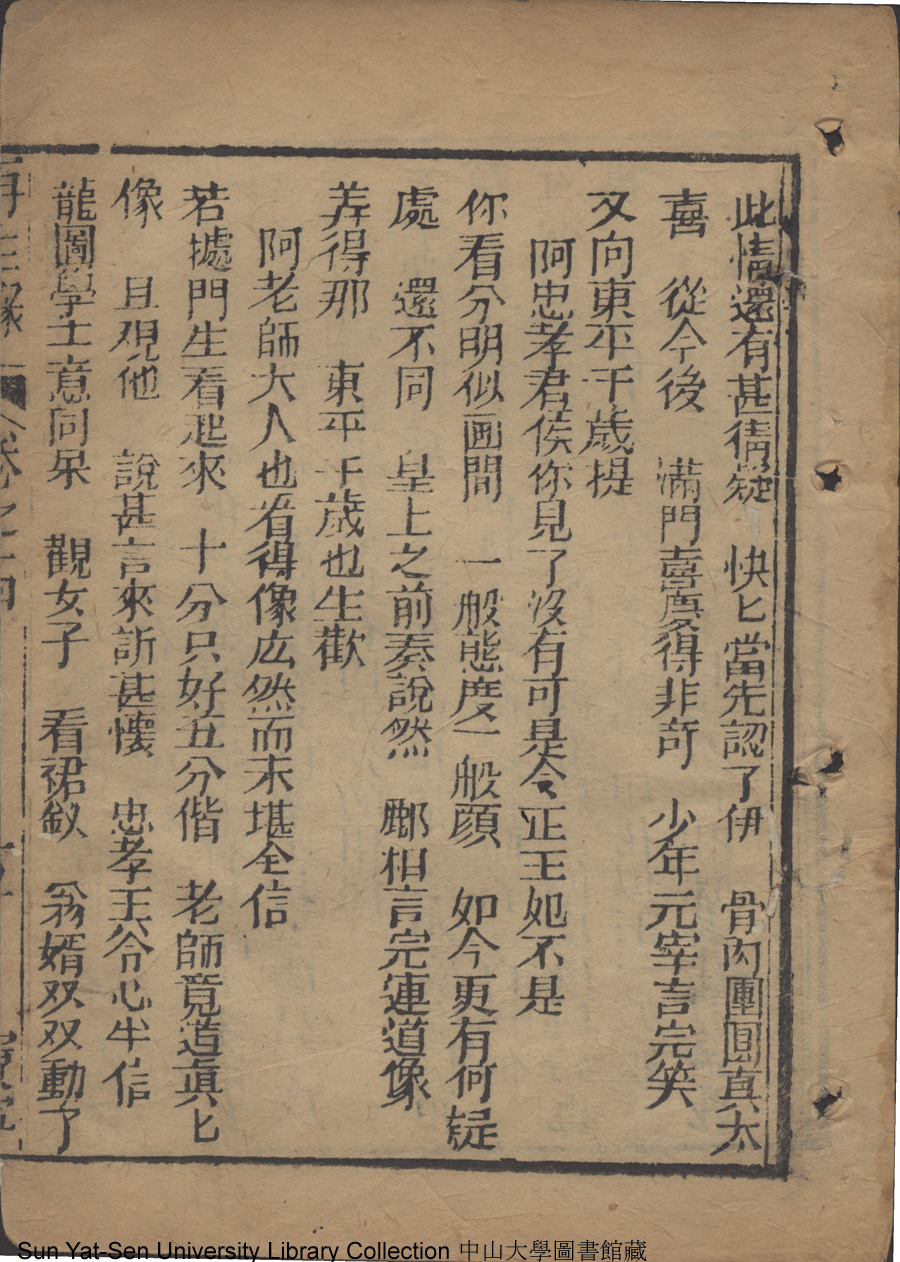 此情還有甚猜疑　快匕當先認了伊　骨肉團圓真太
喜　從今後　滿門喜慶得非奇　少年元宰言完笑
又向東平千歲提
阿忠孝君侯你見了没有可是令正王妃不是
你看分明似画間　一般態度一般顔　如今更有何疑
處　還不同　皇上之前奏說然　酈相言完連道像
弄得那　東平千歲也生歡
阿老師大人也看得像広然而未堪全信
若㨿門生看起來　十分只好五分偕　老師竟道眞匕
像　且覌他　說甚言來訴甚懐　忠孝王爷心半信
龍圖學士意同呆　觀女子　看裙釵　翁婿双双動了
再生緣　卷之十四
Sun Yat-Sen University Library Collection 中山大學圖書館藏